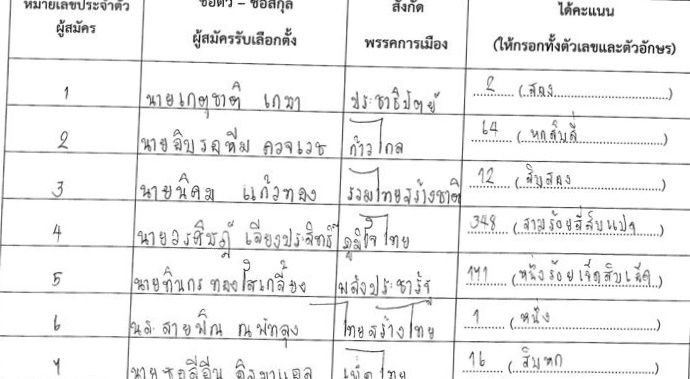 หมายเลขประจำตัว ชื่อตัว – ชื่อสกุล สังกัด ได้คะแนน
ผู้สมัคร ผู้สมัครรับเลือกตั้ง พรรคการเมือง (ให้กรอกทั้งตัวเลขและตัวอักษร)
1 นายเกตุชาติ เกษา ประชาธิปัตย์ 2 (สอง)
2 นายอิบรอฮีม ก้าวไกล 64 (หกสิบสี่)
3 นายนิคม แก้วทอง รวมไทยสร้างชาติ 12 (สิบสอง)
4 นายวรศิษฎ์ เลียงประสิทธิ์ ภูมิใจไทย 348 (สามร้อยสี่สิบแปด)
5 นายทินกร ทองใสเกลี้ยง พลังประชารัฐ 171 (หนึ่งร้อยเจ็ดสิบเอ็ด)
6 น.ส. สายพิณ ณ พัทลุง ไทยสร้างไทย 1 (หนึ่ง)
7 เพื่อไทย 16 (สิบหก)